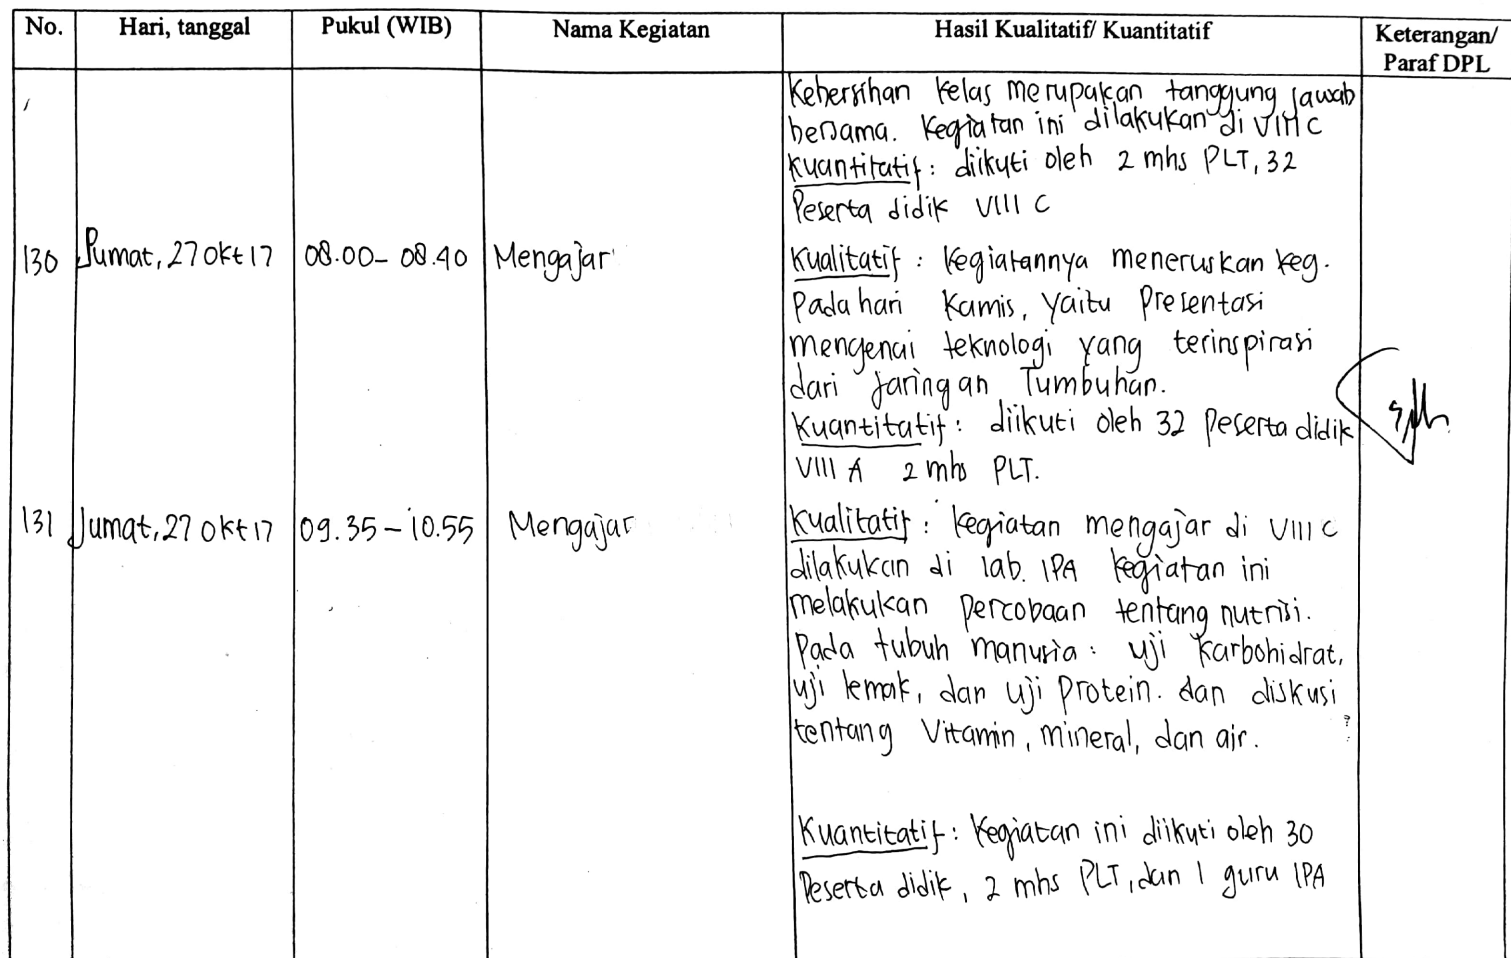 No. Hari, tanggal Pukul (WIB) Nama Kegiatan Hasil Kualitatif/ Kuantitatif Keterangan/ Paraf DPL
Kebersihan kelas merupakan tanggung jawab
bersama. Kegiatan ini dilakukan di VIII C
Kuantitatif : diikuti oleh 2 mhs PLT, 32
Peserta didik VIII C
130 Jumat, 27 Okt 17 08.00 - 08.40 Mengajar Kualitatif : Kegiatannya meneruskan keg.
Pada hari Kamis, yaitu Presentasi
mengenai teknologi yang terinspirasi
dari Jaringan Tumbuhan.
Kuantitatif : diikuti oleh 32 Peserta didik
VIII A 2 mhs PLT.
131 Jumat, 27 Okt 17 09.35 - 10.55 Mengajar Kualitatif : Kegiatan mengajar di VIII C
dilakukan di lab. IPA kegiatan ini
melakukan percobaan tentang nutrisi.
Pada tubuh manusia : uji karbohidrat,
uji lemak, dan uji Protein. dan diskusi
tentang Vitamin, mineral, dan air.
Kuantitatif : Kegiatan ini diikuti oleh 30
Peserta didik, 2 mhs PLT, dan 1 guru IPA